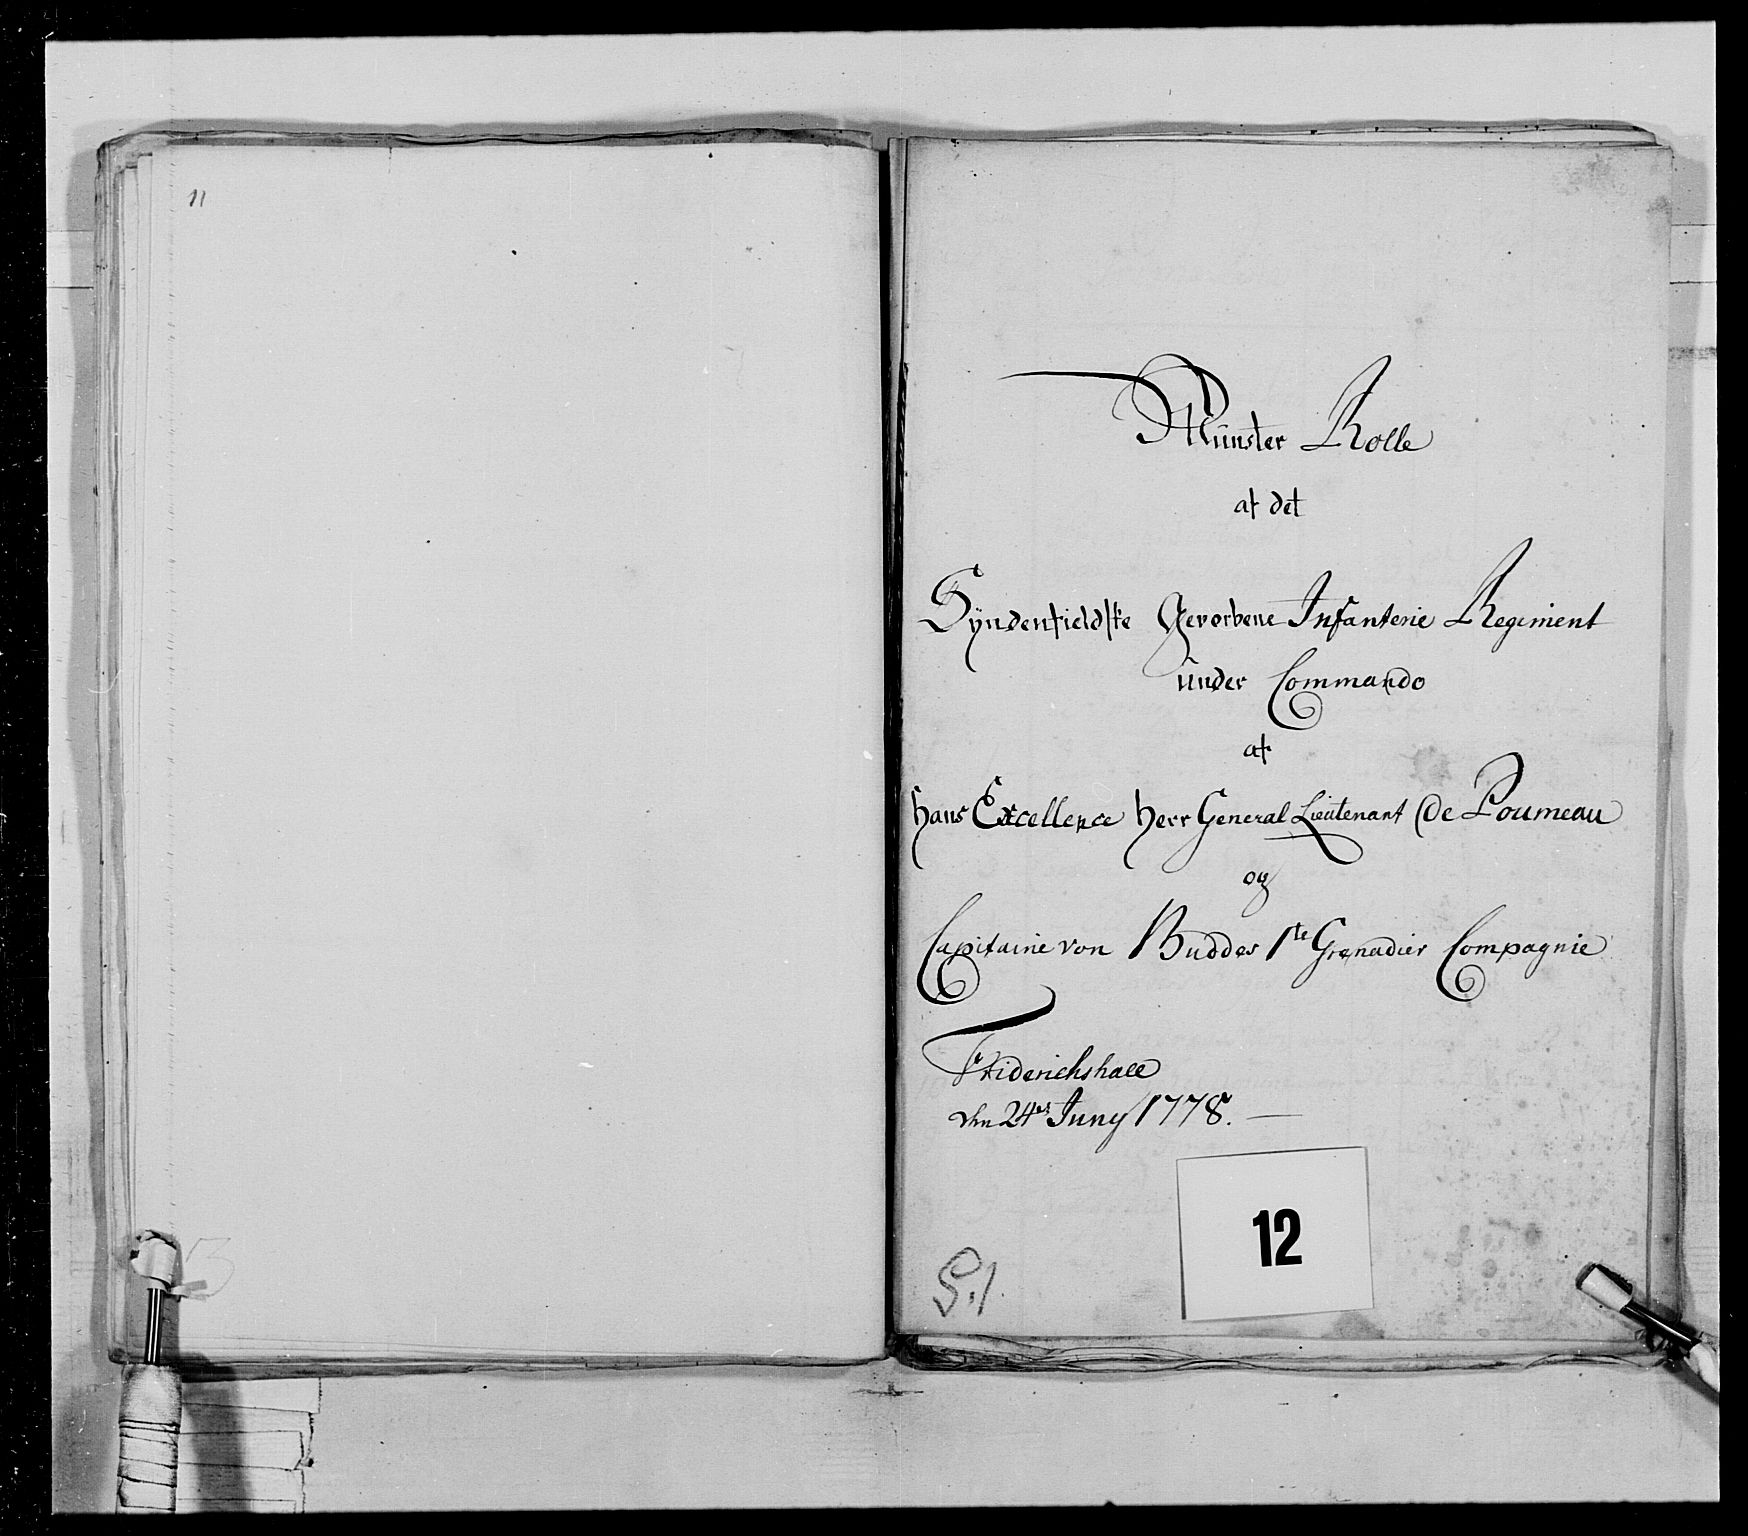 11
Münster Rolle
af det
Syndenfieldske Geworbene Infanterie Regiment
under Commando
af
Hans Excellence Herr General Lieutenant de Poumeau
og
Capitaine von Buddes 1te Grenadier Compagnie
Friderichshall
den 24de Juny 1778.
12